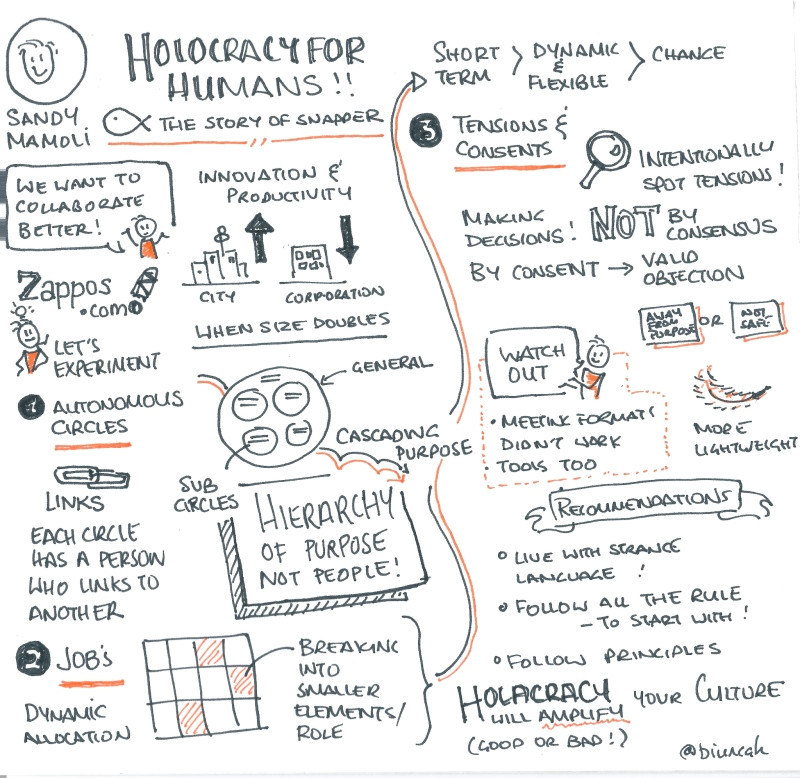 HOLOCRACY FOR
HUMANS!!
SANDY
MAMOLI
THE STORY OF SNAPPER
WE WANT TO
COLLABORATE
BETTER!
INNOVATION &
PRODUCTIVITY
CITY
CORPORATION
WHEN SIZE DOUBLES
Zappos
.com
LET'S
EXPERIMENT
1 AUTONOMOUS
CIRCLES
GENERAL
SUB
CIRCLES
CASCADING
PURPOSE
LINKS
EACH CIRCLE
HAS A PERSON
WHO LINKS TO
ANOTHER
HIERARCHY
OF PURPOSE
NOT PEOPLE!
2 JOB'S
DYNAMIC
ALLOCATION
BREAKING
INTO
SMALLER
ELEMENTS/
ROLE
SHORT
TERM
DYNAMIC
&
FLEXIBLE
CHANGE
3 TENSIONS &
CONSENTS
INTENTIONALLY
SPOT TENSIONS!
MAKING
DECISIONS!
NOT BY
CONSENSUS
BY CONSENT → VALID
OBJECTION
AWAY
FROM
PURPOSE
OR
NOT
SAFE
WATCH
OUT
• MEETING FORMATS
DIDN'T WORK
• TOOLS TOO
MORE
LIGHTWEIGHT
RECOMMENDATIONS
• LIVE WITH STRANGE
LANGUAGE!
• FOLLOW ALL THE RULE
– TO START WITH!
• FOLLOW PRINCIPLES
HOLACRACY YOUR CULTURE
WILL AMPLIFY
(GOOD OR BAD!)